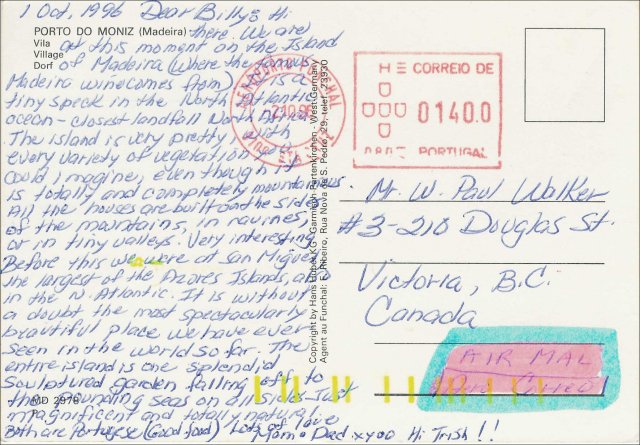 1 Oct, 1996 Dear Billy & Hi
PORTO DO MONIZ (Madeira) there. We are
Vila
Village
Dorf
at this moment on the Island
of Madeira (where the famous
Madeira wine comes from) It is a
tiny speck in the North Atlantic
ocean - closest landfall North Africa.
The island is very pretty, with
every variety of vegetation you
could imagine, even though it
is totally and completely mountainous.
All the houses are built on the sides
of the mountains, in ravines,
or in tiny valleys. Very interesting
Before this we were at San Miguel
the largest of the Azores Islands, also
in the N. Atlantic. It is without
a doubt the most spectacularly
beautiful place we have ever
seen in the world so far. The
entire island is one splendid
sculptured garden falling off to
the surrounding seas on all sides - Just
MD 2978
magnificent and totally natural.
Both are Portugese (Good food) Lots of love
Mom & Dad xyoo Hi Trish!!
Copyright by Hans Huber KG - Garmisch-Partenkirchen - West Germany
Agent au Funchal: F. Ribeiro, Rua Nova de S. Pedro, 29, telef. 23930
CORREIO DE
0140.0
PORTUGAL
Mr. W. Paul Walker
#3-210 Douglas St.
Victoria, B.C.
Canada
AIR MAIL